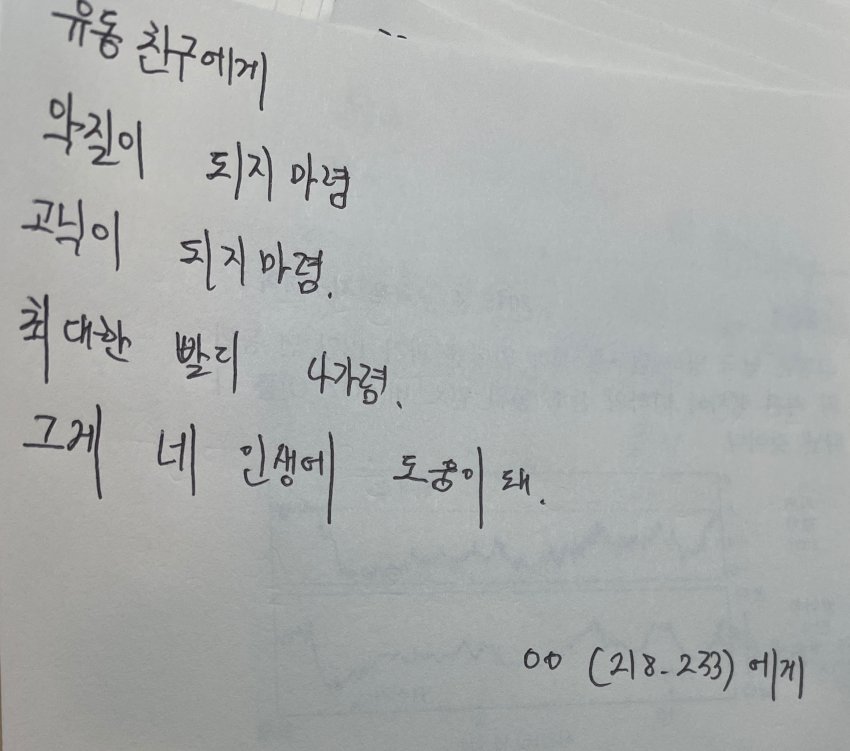 유동 친구에게
악질이 되지 마렴
고닉이 되지 마렴.
최대한 빨리 나가렴.
그게 네 인생에 도움이 돼.
ㅇㅇ (218.233) 에게